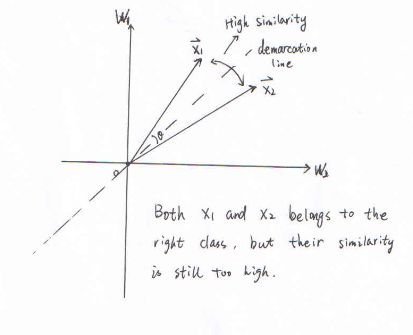 W1
High similarity
x1
demarcation
line
x2
θ
o
W2
Both x1 and x2 belongs to the
right class, but their similarity
is still too high.